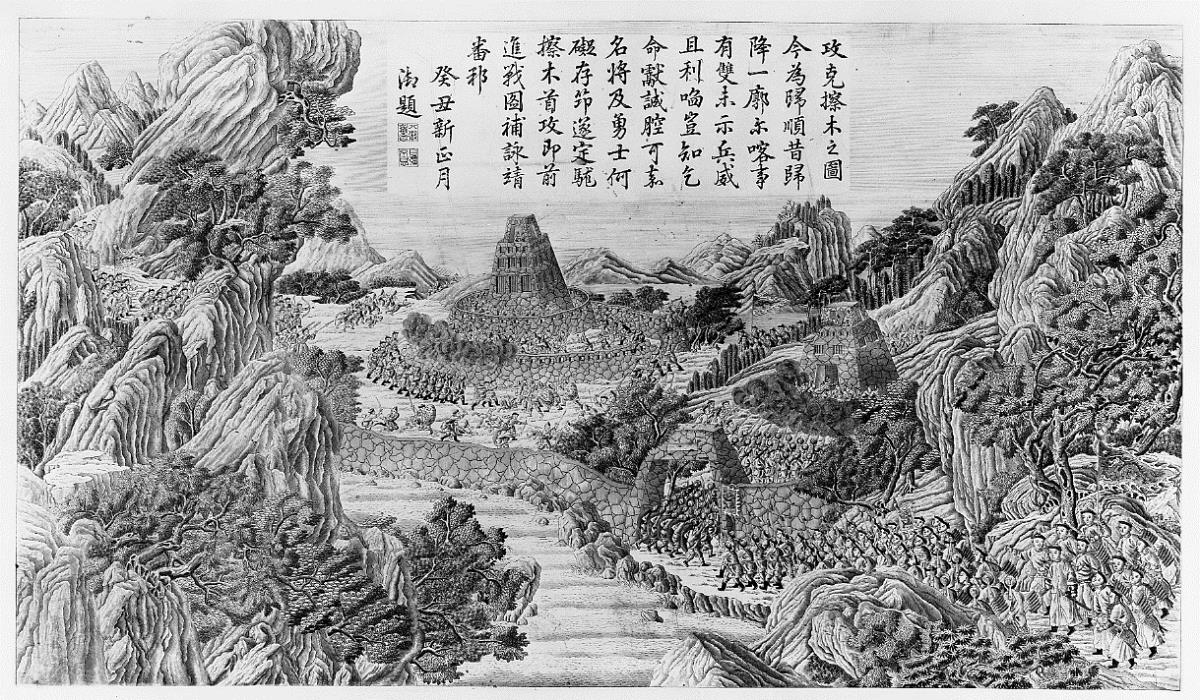 攻克擦木之圖
今為歸順昔歸
降一廓尒喀事
有雙未示兵威
且利啗豈知乞
命獻誠腔可嘉
名將及勇士何
礙存茆遂定駹
擦木首攻即前
進戰圖補詠靖
番邦
癸丑新正月
御題